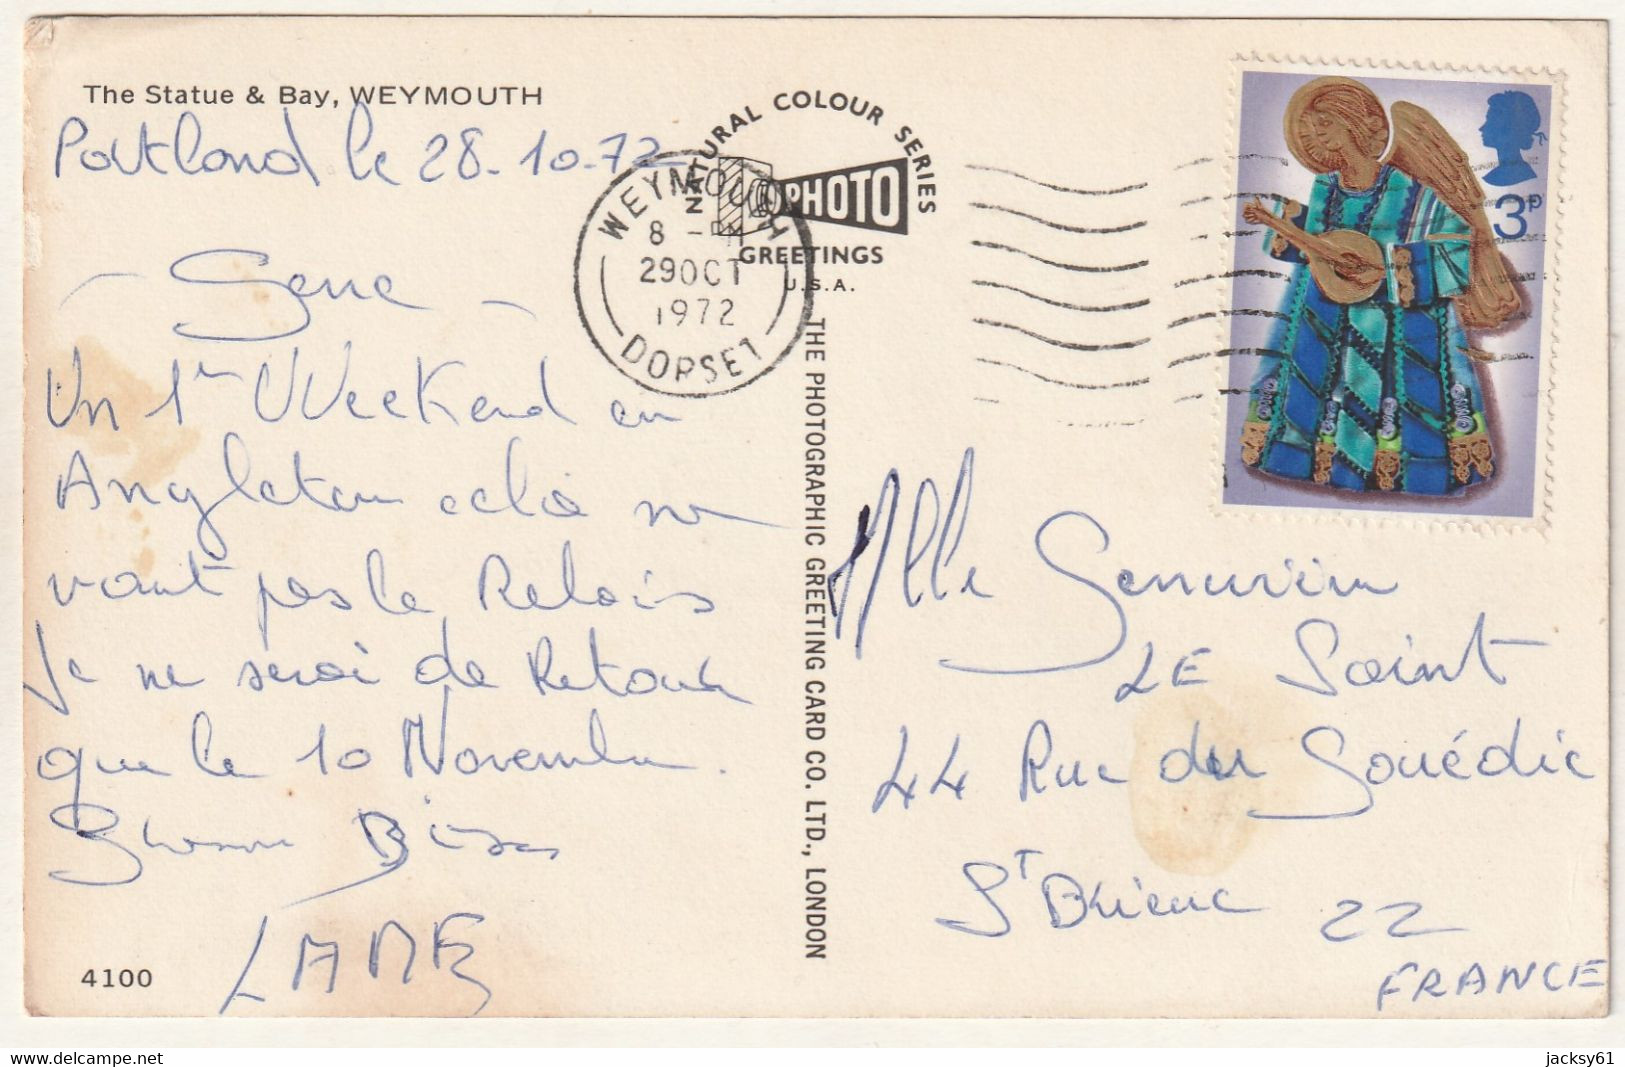 The Statue & Bay, WEYMOUTH
Portland le 28-10-72
Un 1er Weekend en
vant pas le Relais
Je ne serai de Retour
que le 10 Novembre.
4100
NATURAL COLOUR SERIES
PHOTO
GREETINGS
U.S.A.
WEYMOUTH
8 -
29 OCT
1972
DORSET
THE PHOTOGRAPHIC GREETING CARD CO. LTD., LONDON
3P
Mlle Genevieve
LE Saint
44 Rue du Gouédic
St Brieuc 22
FRANCE
jacksy61